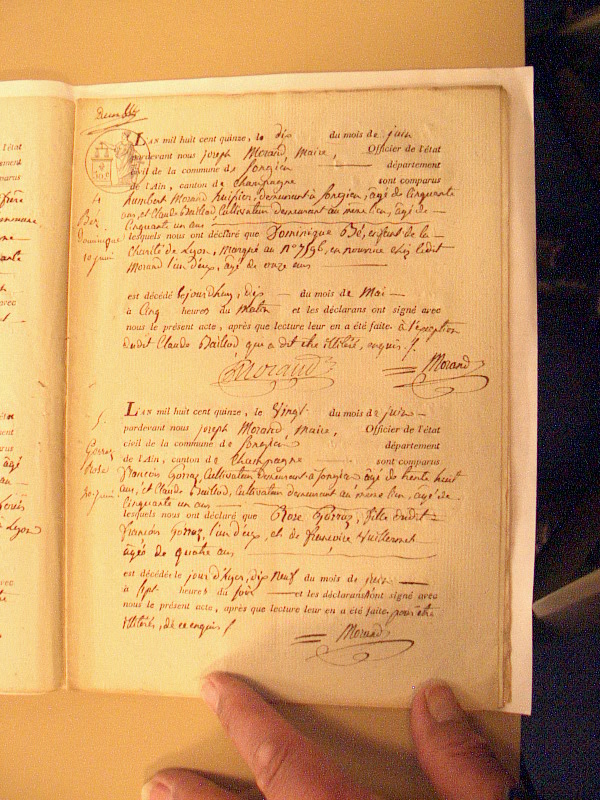 L'AN mil huit cent quinze, le dix du mois de juin
pardevant nous joseph Morand, Maire, Officier de l'état
civil de la commune de Songieu département
de l'Ain, canton de Champagne sont comparus
humbert Morand huissier, demeurant à Songieu, âgé de Cinquante
ans, et Claude Baillod Cultivateur demeurant au même lieu, âgé de
Cinquante un ans
lesquels nous ont déclaré que Dominique Bé, enfant de la
Charité de Lyon, Marqué au n° 7596, en nourrice chez ledit
Morand l'un d'eux, âgé de onze ans
est décédé cejourdhuy, dix du mois de Mai
à Cinq heures du Matin et les déclarans ont signé avec
nous le présent acte, après que lecture leur en a été faite. à l'exception
dudit Claude Baillod qui a dit être illitéré, enquis
Morand
Morand
4
Bé
dominique
10 juin
L'AN mil huit cent quinze, le Vingt du mois de juin
pardevant nous joseph Morand Maire, Officier de l'état
civil de la commune de Songieu département
de l'Ain, canton de Champagne sont comparus
françois Gorraz Cultivateur demeurant à Songieu âgé de trente huit
ans, et Claude Baillod, Cultivateur demeurant au même lieu, âgé de
Cinquante un ans
lesquels nous ont déclaré que Rose Gorraz, fille dudit
françois Gorraz, l'un d'eux, et de françoise Vuillermet
âgée de quatre ans
est décédée le jour d'hyer, dix neuf du mois de juin
à Sept heures du soir et les déclarans ont signé avec
nous le présent acte, après que lecture leur en a été faite, pour être
illitérés, de ce enquis
Morand
5
Gorraz
Rose
20 juin